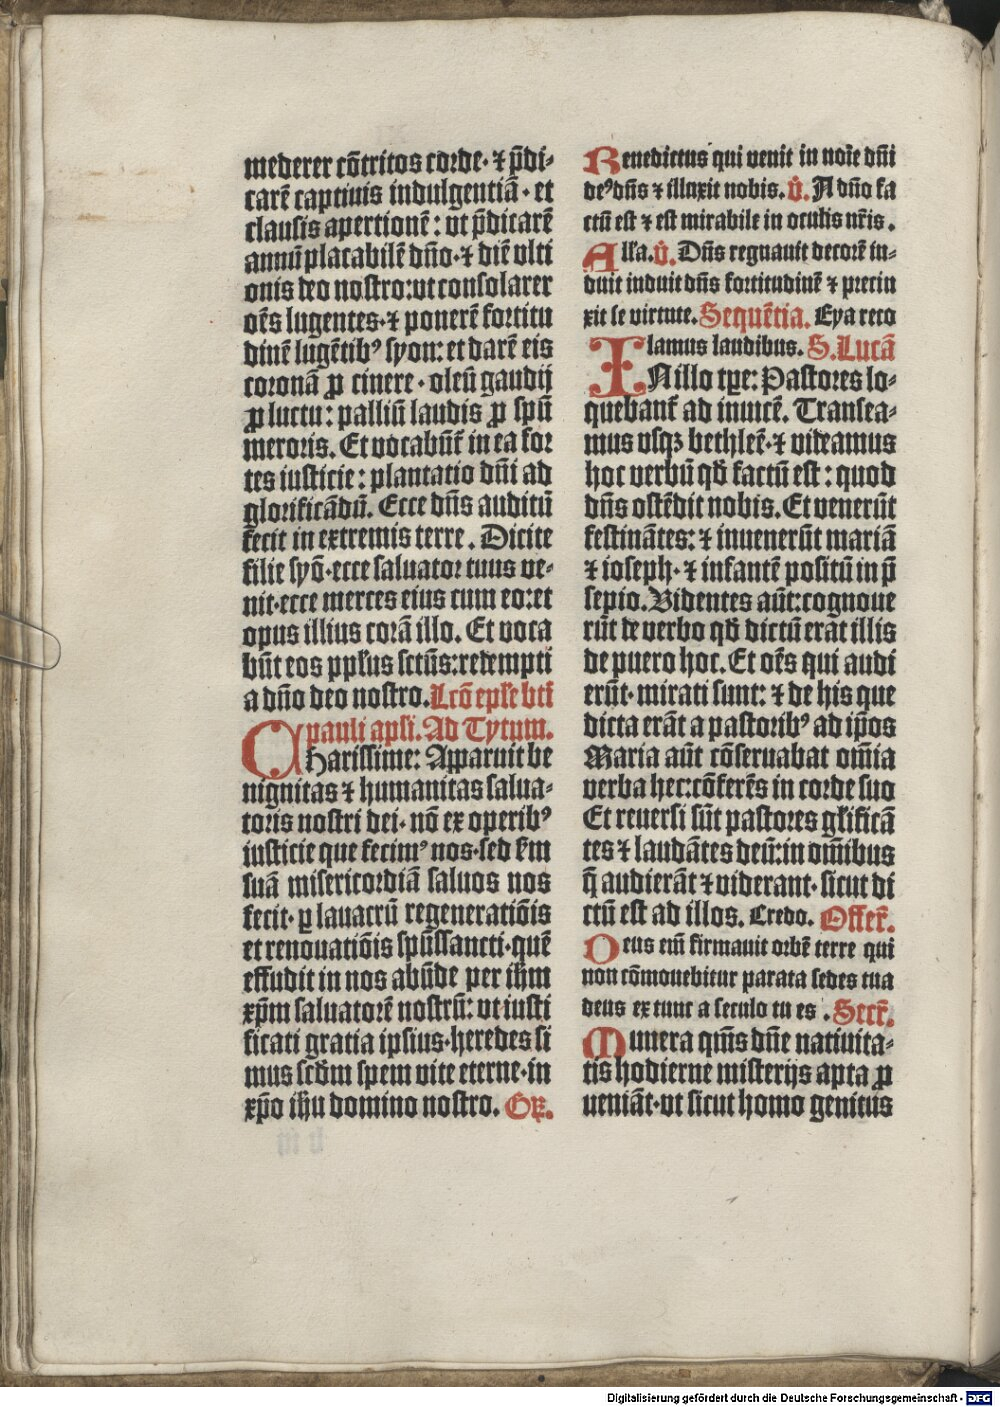 mederer cõtritos corde · ⁊ p̃di-
carẽ captiuis indulgentiã · et
clausis apertionẽ : vt p̃dicarẽ
annũ placabilẽ dño · ⁊ diẽ vlti
onis deo nostro : vt consolarer
oẽs lugentes · ⁊ ponerẽ fortitu
dinẽ lugẽtibꝰ syon : et darẽ eis
coronã ꝓ cinere · oleũ gaudij
ꝓ luctu : palliũ laudis ꝓ spũ
meroris. Et vocabũt̃ in ea for
tes iusticie : plantatio dñi ad
glorificãdũ. Ecce dñs auditũ
fecit in extremis terre . Dicite
filie syõ · ecce saluator tuus ve-
nit · ecce merces eius cum eo : et
opus illius corã illo. Et voca
bũt eos pp̃lus sctũs : redempti
a dño deo nostro. Lcõ ep̃le bt̃i
pauli apl̃i. Ad Tytum.
Charissime : Apparuit be
nignitas ⁊ humanitas salua-
toris nostri dei · nõ ex operibꝰ
iusticie que fecimꝰ nos · sed s̃m
suã misericordiã saluos nos
fecit · ꝑ lauacrũ regeneratiõis
et renouatiõis spũssancti · quẽ
effudit in nos abũde per ihm̃
xp̃m saluatorẽ nostrũ : vt iusti
ficati gratia ipsius · heredes si
mus scd̃m spem vite eterne · in
xp̃o ihu domino nostro. Gr̃.
Benedictus qui venit in noĩe dñi
deꝰ dñs ⁊ illuxit nobis. v̾. A dño fa
ctũ est ⁊ est mirabile in oculis nr̃is .
All'a. v̾. Dñs regnauit decorẽ in-
duit induit dñs fortitudinẽ ⁊ precin
xit se virtute. Sequẽtia. Eya reco
lamus laudibus. S. Lucã
IN illo tp̃e : Pastores lo-
quebant̃ ad inuicẽ. Transea-
mus vsqꝫ bethleẽ · ⁊ videamus
hoc verbũ qđ factũ est : quod
dñs ostẽdit nobis. Et venerũt
festinãtes : ⁊ inuenerũt mariã
⁊ ioseph · ⁊ infantẽ positũ in p̃
sepio. Videntes aũt : cognoue
rũt de verbo qđ dictũ erat illis
de puero hoc. Et oẽs qui audi
erũt · mirati sunt : ⁊ de his que
dicta erãt a pastoribꝰ ad ip̃os
Maria aũt cõseruabat om̃ia
verba hec : cõferẽs in corde suo
Et reuersi sũt pastores gl̃ificã
tes ⁊ laudãtes deũ : in om̃ibus
q̃ audierãt ⁊ viderant · sicut di
ctũ est ad illos. Credo. Offer̃.
Deus em̃ firmauit orbẽ terre qui
non cõmouebitur parata sedes tua
deus ex tunc a seculo tu es . Secr̃.
Munera qm̃s dñe natiuita-
tis hodierne misterijs apta ꝓ
ueniãt · vt sicut homo genitus
Digitalisierung gefördert durch die Deutsche Forschungsgemeinschaft - DFG